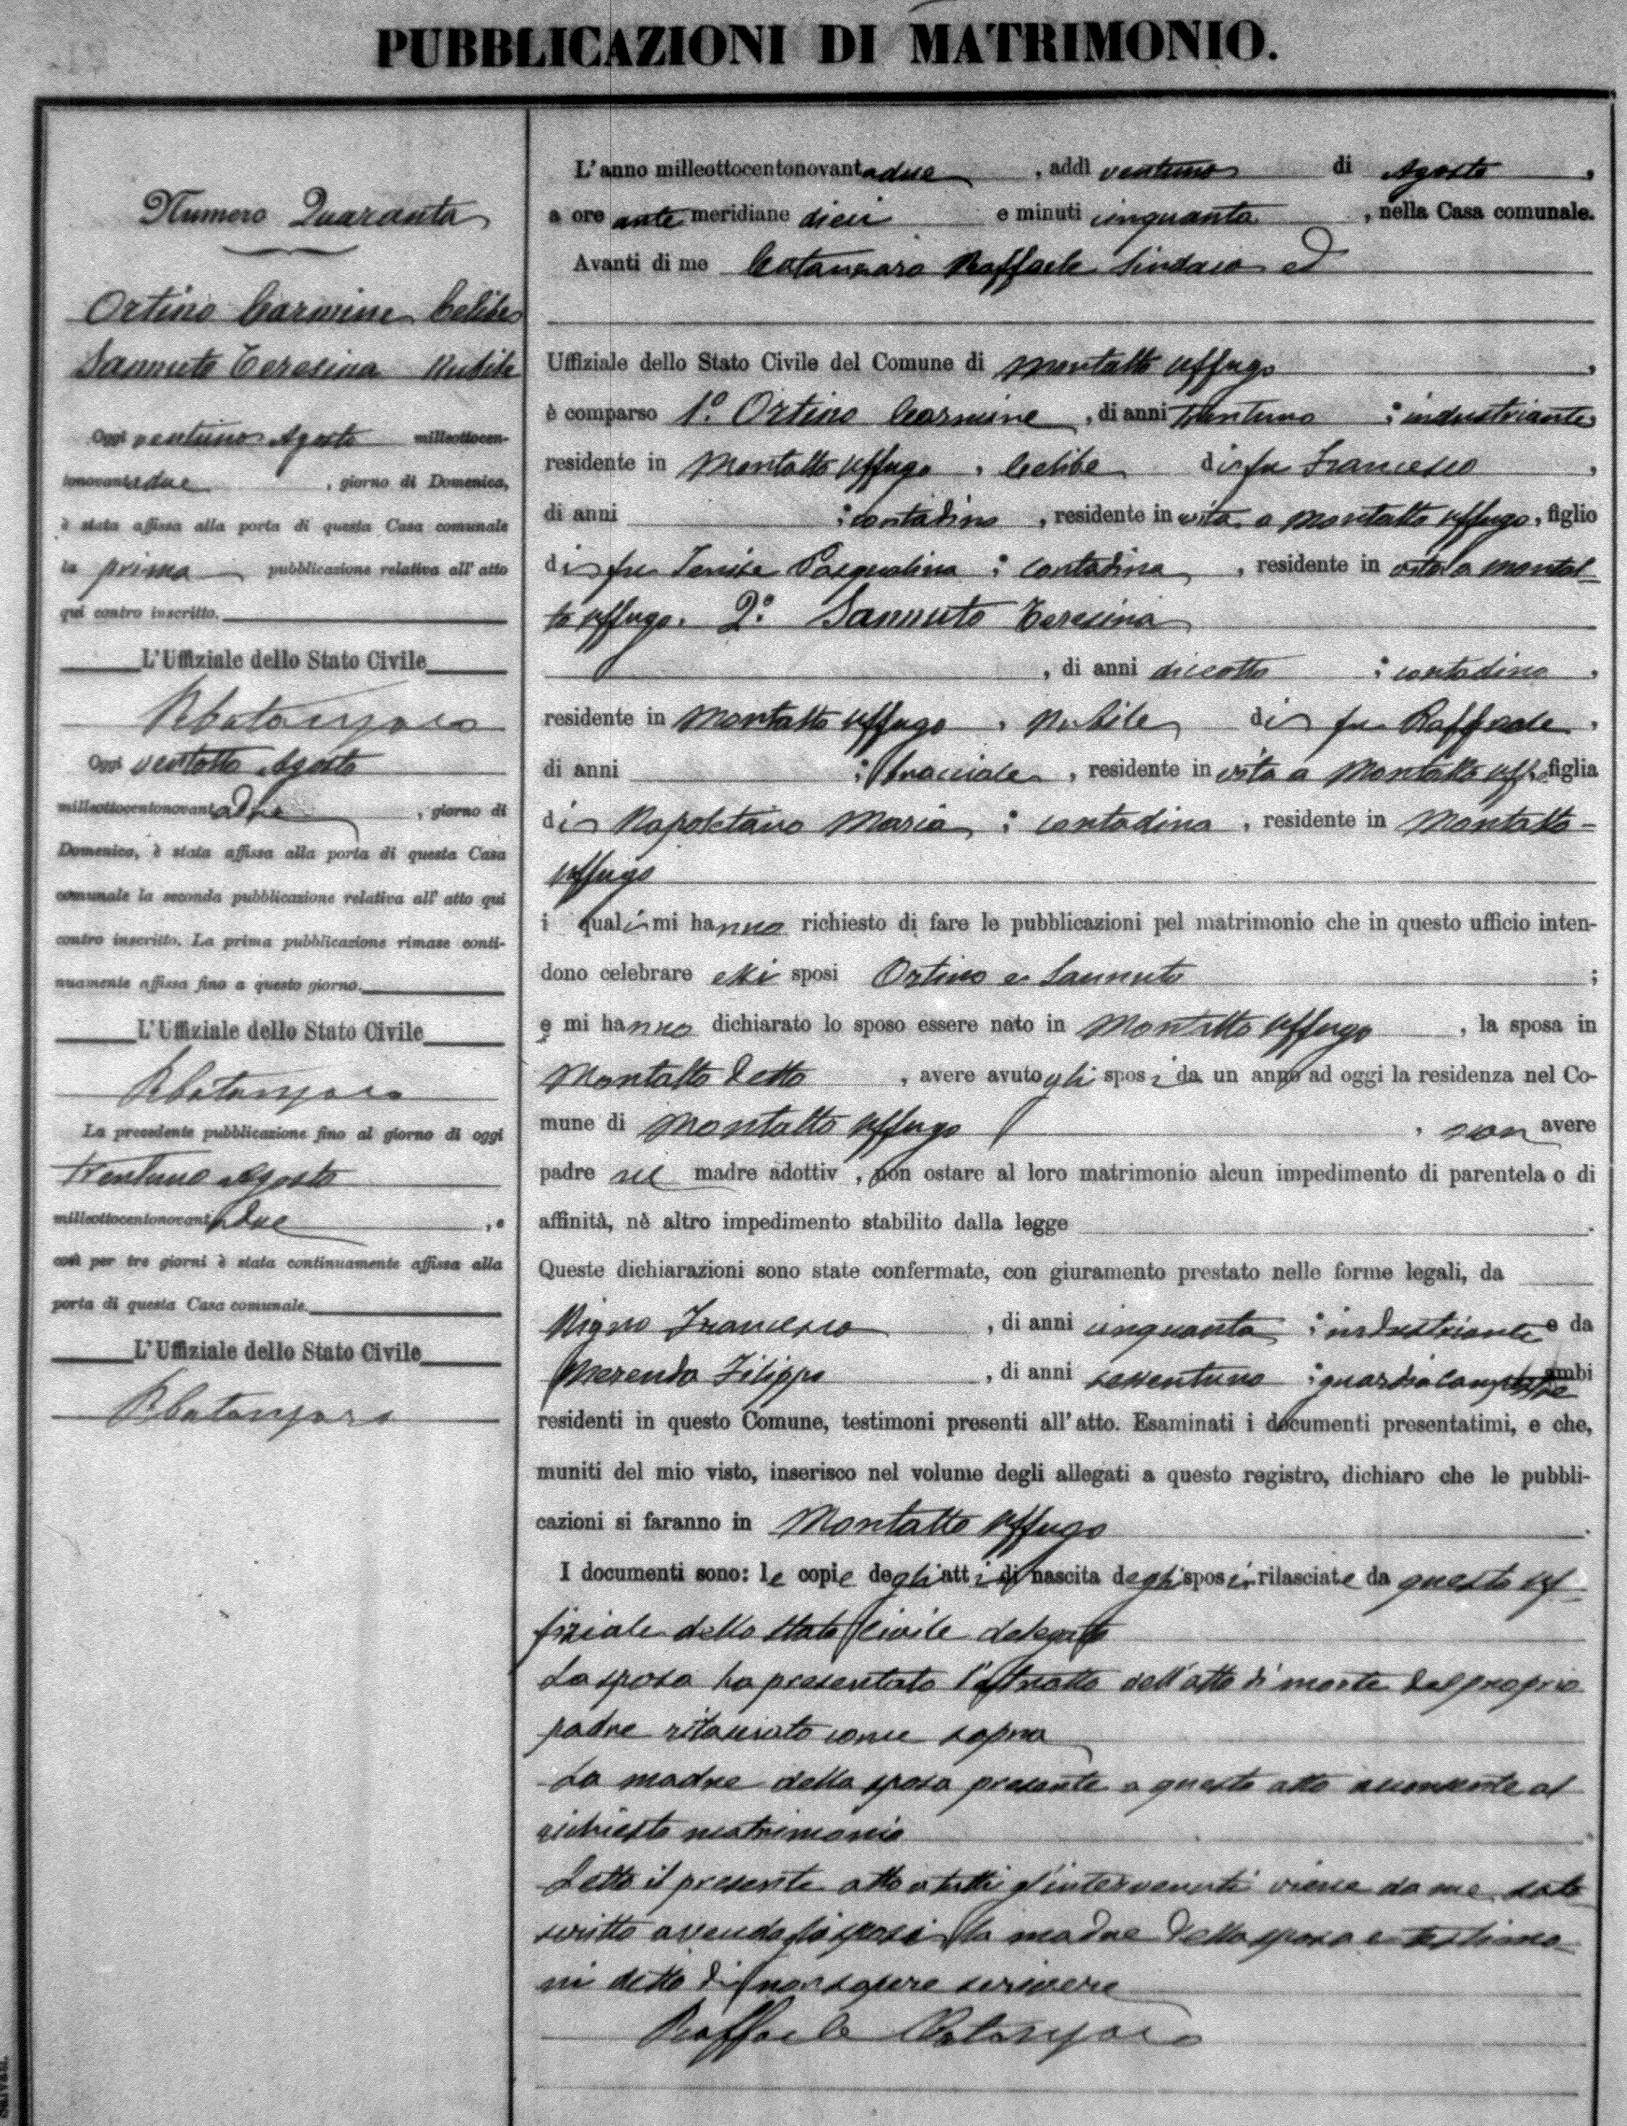 PUBBLICAZIONI DI MATRIMONIO.
Numero Quaranta
Ortino Carmine Celibe
Sannuto Teresina Nubile
Oggi ventuno Agosto milleottocen-
tonovantadue, giorno di Domenica,
è stata affissa alla porta di questa Casa comunale
la prima pubblicazione relativa all' atto
qui contro inscritto.
L'Uffiziale dello Stato Civile
RCatanzaro
Oggi ventotto Agosto
milleottocentonovantadue, giorno di
Domenica, è stata affissa alla porta di questa Casa
comunale la seconda pubblicazione relativa all' atto qui
contro inscritto. La prima pubblicazione rimase conti-
nuamente affissa fino a questo giorno.
L'Uffiziale dello Stato Civile
RCatanzaro
La precedente pubblicazione fino al giorno di oggi
trentuno Agosto
milleottocentonovantadue, e
così per tre giorni è stata continuamente affissa alla
porta di questa Casa comunale.
L'Uffiziale dello Stato Civile
RCatanzaro
L'anno milleottocentonovantadue, addì ventuno di Agosto,
a ore ante meridiane dieci e minuti cinquanta, nella Casa comunale.
Avanti di me Catanzaro Raffaele Sindaco ed
Uffiziale dello Stato Civile del Comune di Montalto Uffugo,
è comparso 1º. Ortino Carmine, di anni trentuno; industriante
residente in Montalto Uffugo, Celibe di fu Francesco,
di anni ; contadino, residente in vita a Montalto Uffugo, figlio
di fu Pasqualina; contadina, residente in vita a Montal-
to Uffugo. 2º. Sannuto Teresina
, di anni diciotto; contadina,
residente in Montalto Uffugo, Nubile di fu Raffaele,
di anni ; bracciale, residente in vita a Montalto Uffo figlia
di Napoletano Maria; contadina, residente in Montalto-
Uffugo
i quali mi hanno richiesto di fare le pubblicazioni pel matrimonio che in questo ufficio inten-
dono celebrare essi sposi Ortino e Sannuto;
e mi hanno dichiarato lo sposo essere nato in Montalto Uffugo, la sposa in
Montalto detto, avere avuto gli sposi da un anno ad oggi la residenza nel Co-
mune di Montalto Uffugo, non avere
padre nè madre adottiv, non ostare al loro matrimonio alcun impedimento di parentela o di
affinità, nè altro impedimento stabilito dalla legge.
Queste dichiarazioni sono state confermate, con giuramento prestato nelle forme legali, da
Nigro Francesco, di anni cinquanta; industriante e da
Merenda Filippo, di anni sessantuno; guardia campestre ambi
residenti in questo Comune, testimoni presenti all' atto. Esaminati i documenti presentatimi, e che,
muniti del mio visto, inserisco nel volume degli allegati a questo registro, dichiaro che le pubbli-
cazioni si faranno in Montalto Uffugo.
I documenti sono: le copie degli atti di nascita degli sposi rilasciate da questo uf-
fiziale dello Stato Civile delegato
La sposa ha presentato l'estratto dell'atto di morte del proprio
padre rilasciato come sopra
La madre della sposa presente a questo atto acconsente al
richiesto matrimonio.
Letto il presente atto a tutti gl'intervenuti viene da me sotto
scritto avendo gli sposi la madre della sposa e testimo-
ni detto di non sapere scrivere
Raffaele Catanzaro